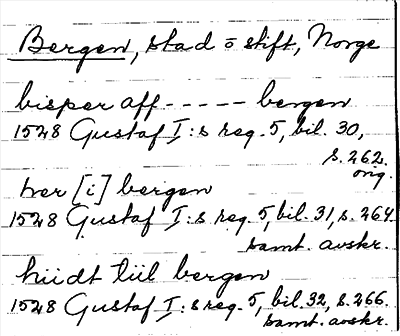 Bergen, stad o stift, Norge
bisper aff ----- bergen
1528 Gustaf I:s reg. 5, bil. 30,
s. 262.
orig.
her [i] bergen
1528 Gustaf I:s reg. 5, bil. 31, s. 264
samt. avskr.
hiidt tiil bergen
1528 Gustaf I:s reg. 5, bil. 32, s. 266.
samt. avskr.